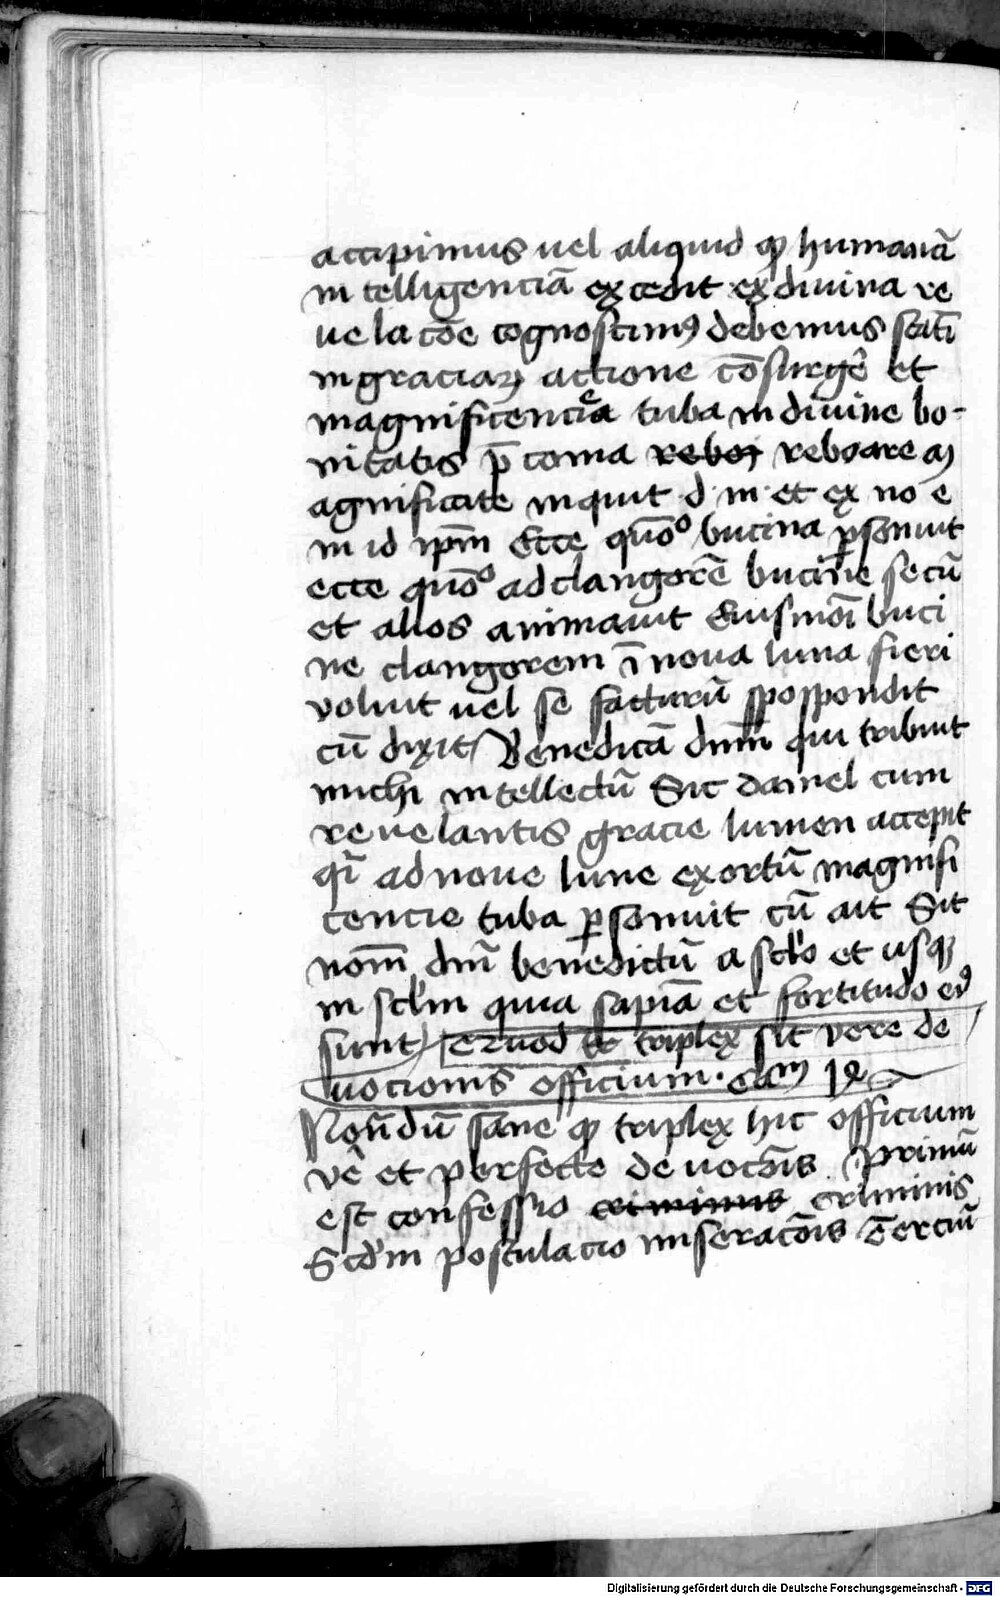 accipimus uel aliquid qꝫ humanā
intelligenciā excedit ex diuina re
uelacōe cognoscimꝰ debemus statī
in graciaꝝ actione cōsurgē et
magnificencie tuba in diuine bo-
nitatis p̄conia reboare
agnificate inquit et ex no e
in id ipm̄ Ecce quōo bucina ꝑsonuit
ecce quōo ad clangorē bucine secū
et alios animauit Eiusmōi buci
ne clangorem ī noua luna fieri
voluit uel se facturū spospondit
cū dixit Benedicā dnm̄ qui tribuit
michi intellectū Sic daniel cum
reuelantis gracie lumen accepit
qi ad noue lune exortū magnifi
cencie tuba ꝑsonuit cū ait Sit
nom̄ dnī benedictū a sclo et usqꝫ
in sclm quia sapiā et fortitudo eiꝰ
sunt Quod triplex sit vere de
uocionis officium. Cam
Notādū sane qꝫ triplex hic officium
vē et perfecte deuocōnis Primū
est confessio criminis criminis
Scdm postulacio miseracōnis Terciū
Digitalisierung gefördert durch die Deutsche Forschungsgemeinschaft - DFG